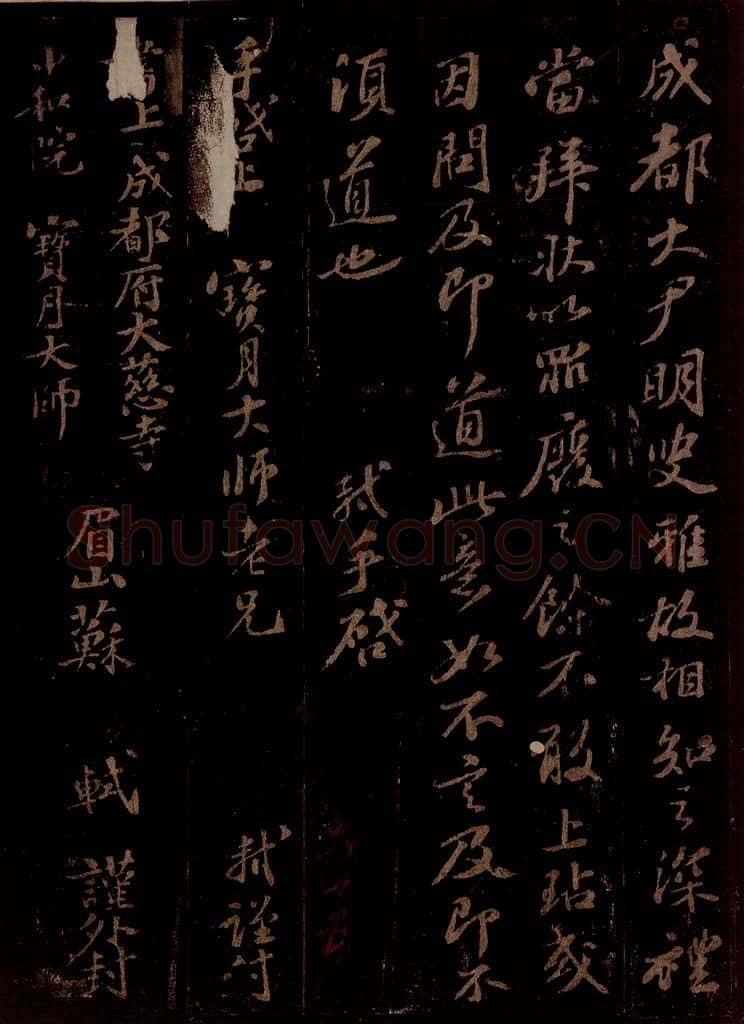 成都大尹明叟雅故相知之深禮
當拜狀以罪廢之餘不敢上玷或
因問及即道此意如不言及即不
須道也
軾手啓
手啓上 寶月大師老兄 軾謹封
上 成都府大慈寺
中和院 寶月大師
眉山蘇 軾 謹外封
Shufawang.CN